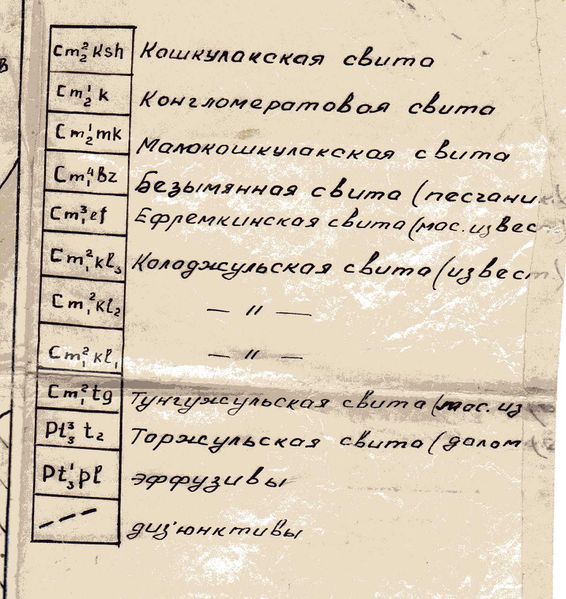 в
Cm₂² Ksh Кошкулакская свита
Cm₂¹ k Конгломератовая свита
Cm₂¹ mk Малокошкулакская свита
Cm₁⁴ Bz Безымянная свита (песчани
Cm₁³ ef Ефремкинская свита (мас. извес
Cm₁² kl₃ Колоджульская свита (извест
Cm₁² kl₂ — " —
Cm₁² kl₁ — " —
Cm₁² tg Тунгужульская свита (мас. из
Pt₃³ t₂ Таржульская свита (далом
Pt₃¹ pl эффузивы
дизъюнктивы